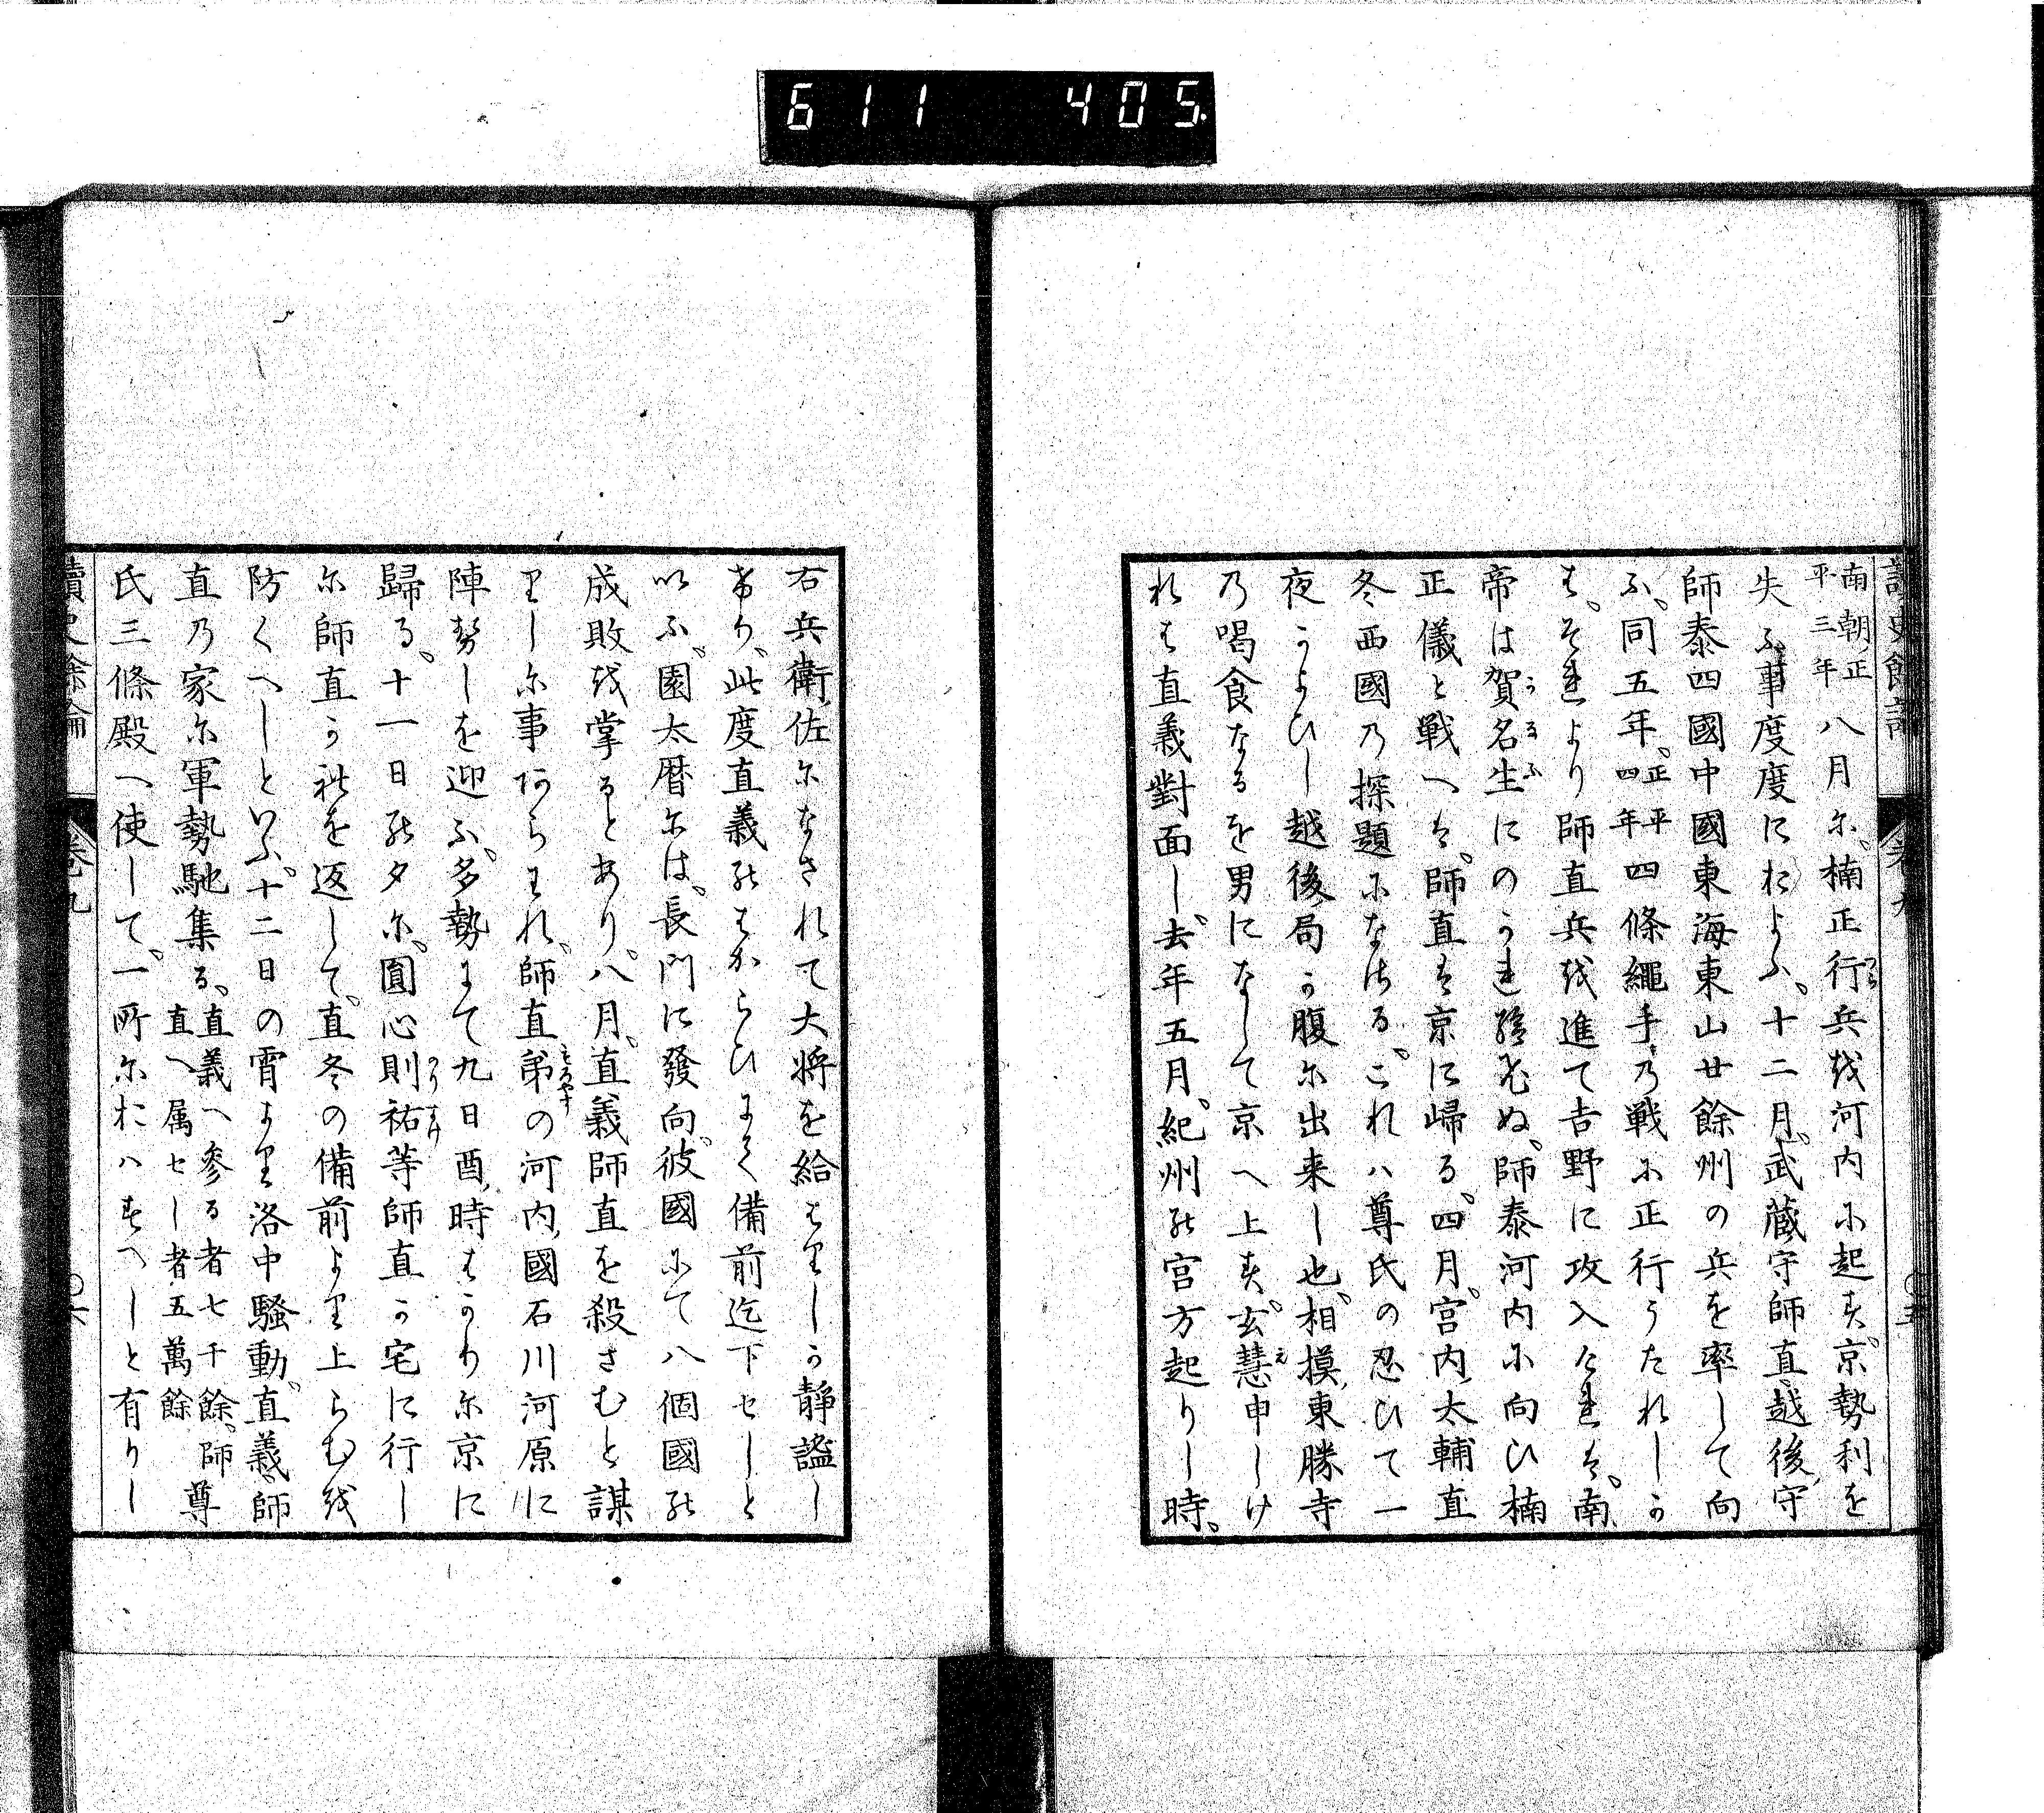 611 405
讀史餘論 卷九 〇五
南朝正平三年八月尓、楠正行兵越河内尓起す、京勢利を
失ふ事度度におよふ、十二月、武蔵守師直、越後守
師泰四國中國東海東山廿餘州の兵を率して向
ふ、同五年、正平四年四條繩手乃戦尓正行うたれしか
は、それより師直兵越進て吉野に攻入けれは、南
帝は賀名生にのかれ給ひぬ、師泰河内尓向ひ楠
正儀と戦へは、師直は京に帰る、四月、宮内太輔直
冬西國乃探題尓なさる、これハ尊氏の忍ひて一
夜かよひし越後局か腹尓出来し也、相摸東勝寺
乃喝食なるを男になして京へ上す、玄慧申しけ
れは直義對面し、去年五月、紀州能宮方起りし時、
右兵衛佐尓なされて大将を給はりしか静謐し
けり、此度直義能はからひにて備前迄下セしと
以ふ、園太暦尓は、長門に發向、彼國尓て八個國能
成敗越掌るとあり、八月、直義師直を殺さむと謀
りし尓事阿らはれ、師直弟の河内國石川河原に
陣勢しを迎ふ、多勢にて九日酉時はかり尓京に
歸る、十一日能夕尓、圓心則祐等師直か宅に行し
尓師直か礼を返して、直冬の備前より上らむ越
防くへしといふ、十二日の宵より洛中騒動、直義師
直乃家尓軍勢馳集る、直義へ參る者七千餘、師直へ属セし者五萬餘 尊
氏三條殿へ使して、一所尓おハすへしと有りし
讀史餘論 卷九 〇六